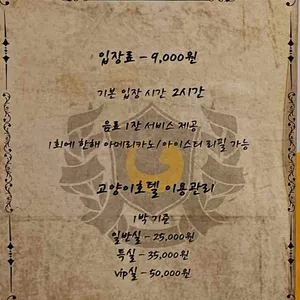 입장료 - 9,000원
기본 입장 시간 2시간
음료 1잔 서비스 제공
1회에 한해 아메리카노/아이스티 리필 가능
고양이호텔 이용관리
1박 기준
일반실 - 25,000원
특실 - 35,000원
vip실 - 50,000원